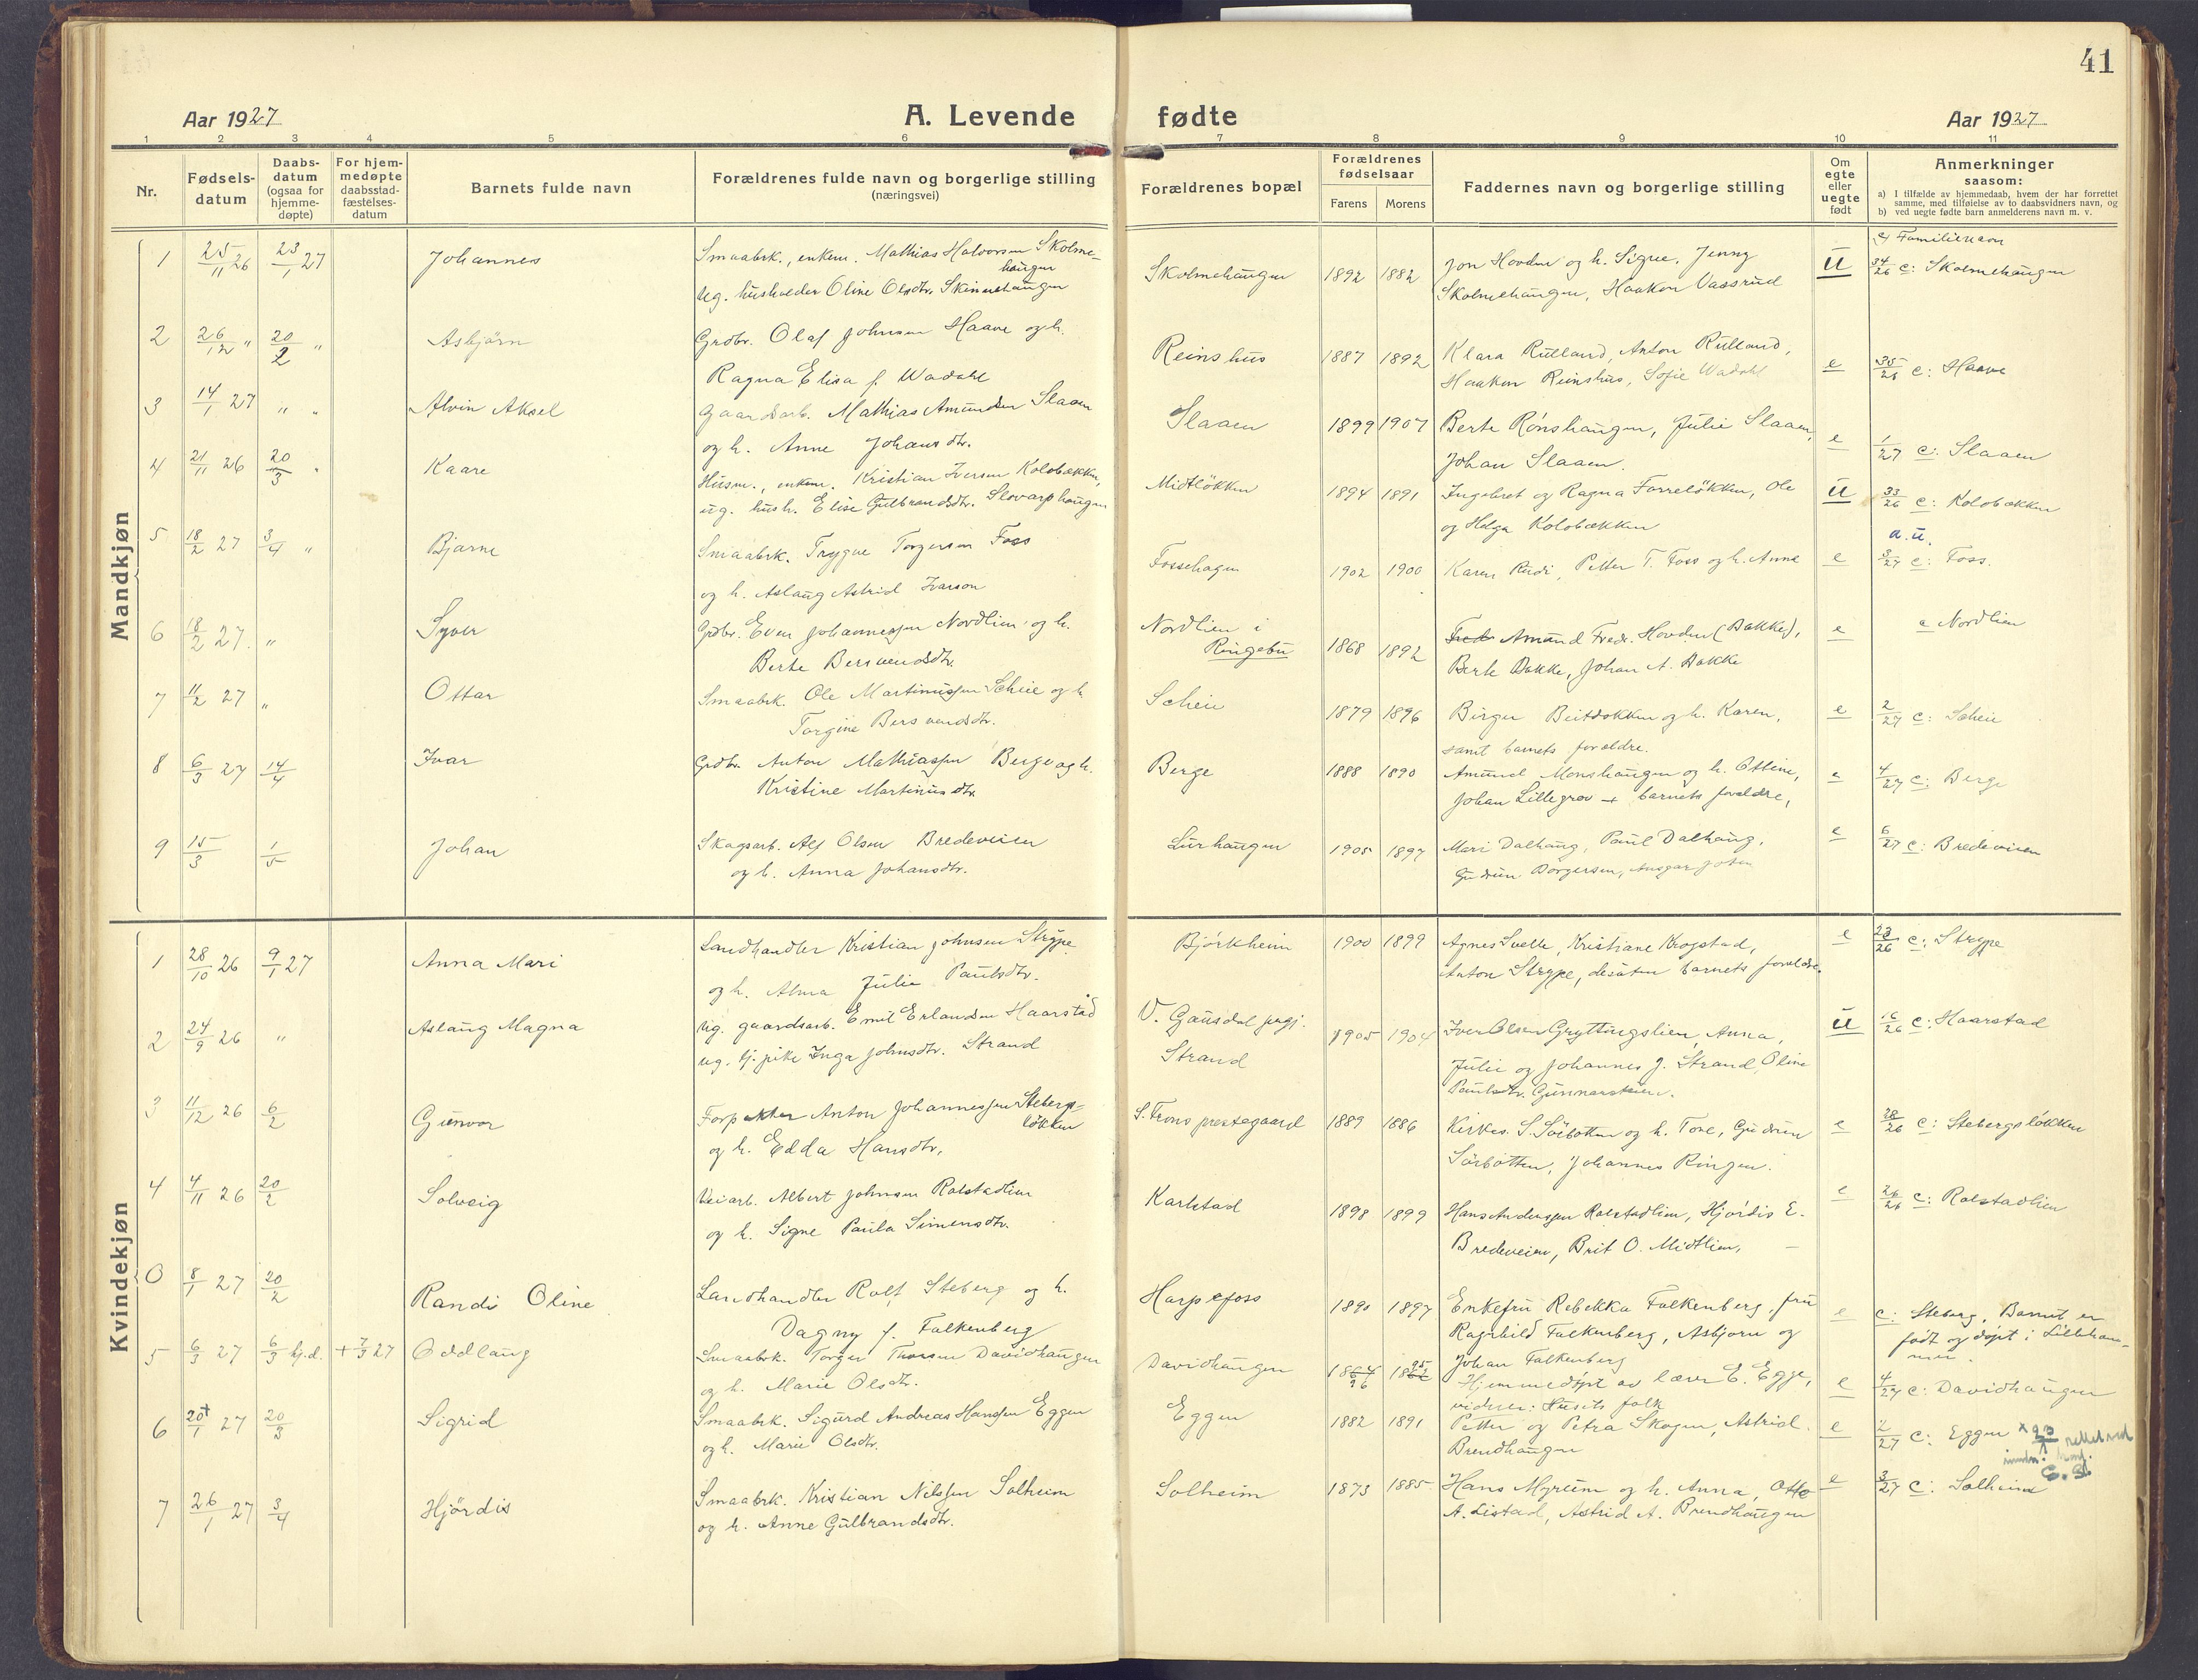 41
Aar 1927
A. Levende fødte
Aar 1927
1 2 3 4 5 6 7 8 9 10 11
Nr.
Fødsels-datum
Daabs-datum (ogsaa for hjemme-døpte)
For hjem-medøpte daabsstad-fæstelses-datum
Barnets fulde navn
Forældrenes fulde navn og borgerlige stilling (næringsvei)
Forældrenes bopæl
Forældrenes fødselsaar
Farens
Morens
Faddernes navn og borgerlige stilling
Om egte eller uegte født
Anmerkninger saasom:
a) I tilfælde av hjemmedaab, hvem der har forrettet samme, med tilføielse av to daabsvidners navn, og
b) ved uegte fødte barn anmelderens navn m. v.
Mandkjøn
c) Familienavn
1 25/11 26 23/1 27 Johannes
Smaabrk., enkem. Mathias Halvorsen Skolme-haugen
Ug. husholder Oline Olsdtr. Skinnehaugen
Skolmehaugen 1892 1882
Jon Hovden og h. Signe, Jenny
Skolmehaugen, Haakon Vassrud
u 34/26 c: Skolmehaugen
2 26/12 " 20/2 " Asbjørn
Grdbr. Olaf Johnsen Haave og h.
Ragna Elisa f. Wadahl
Reinshus 1887 1892
Klara Rulland, Anton Rulland,
Haakon Reinshus, Sofie Wadahl
e 35/26 c: Haave
3 14/1 27 " " Alvin Aksel
Gaardsarb. Mathias Amundsen Slaaen
og h. Anne Johansdtr.
Slaaen 1899 1907
Berte Rønshaugen, Julie Slaaen,
Johan Slaaen.
e 1/27 c: Slaaen
4 21/11 26 20/3 " Kaare
Husm., enkem. Kristian Iversen Kolobækken,
ug. hush. Elise Gulbrandsdtr. Slovarphaugen
Midtløkken 1894 1891
Ingebret og Ragna Forreløkken, Ole
og Helga Kolobækken
u 33/26 c: Kolobækken
a.u.
5 18/2 27 3/4 " Bjarne
Smaabrk. Trygve Torgersen Foss
og h. Aslaug Astrid Ivarson
Fossehagen 1902 1900
Karen Rudi, Petter T. Foss og h. Anna
e 3/27 c: Foss.
6 18/2 27. " Syver
Grdbr. Even Johannessen Nordlien og h.
Berte Bersvendsdtr.
Nordlien i Ringebu 1868 1892
Amund Fredr. Hovden (Bakke),
Berte Bakke, Johan A. Bakke
e c Nordlien
7 11/2 27 " Ottar
Smaabrk. Ole Martinussen Scheie og h.
Torgine Bersvendsdtr.
Scheie 1879 1896
Birger Beitdokken og h. Karen,
samt barnets forældre.
e 2/27 c: Scheie
8 6/3 27 14/4 Ivar
Grdbr. Anton Mathiassen Berge og h.
Kristine Martinusdtr.
Berge 1888 1890
Amund Monshaugen og h. Otline,
Johan Lillegrov + barnets forældre,
e 4/27 c: Berge
9 15/3 1/5 Johan
Skogsarb. Alf Olsen Bredeveien
og h. Anna Johansdtr.
Lurhaugen 1905 1897
Mari Dalhaug, Paul Dalhaug,
Gudrun Borgersen, Ansgar
e 6/27 c: Bredeveien
Kvindekjøn
1 28/10 26 9/1 27 Anna Mari
Landhandler Kristian Johnsen Strype
og h. Alma Julie Paulsdtr.
Bjørkheim 1900 1899
Agnes Svelle, Kristiane Krogstad,
Anton Strype, desuten barnets forældre.
e 23/26 c: Strype
2 24/9 26 " Aslaug Magna
Ug. gaardsarb. Emil Erlandsen Haarstad
ug. tj.pike Inga Johnsdtr. Strand
V. Gausdal prgj. Strand 1905 1904
Iver Olsen Gryttingslien, Anna,
Julie og Johannes J. Strand, Oline
Paulsdtr. Gunnarsteien.
u 16/26 c: Haarstad
3 11/12 26 6/2 Gunvor
Forpakter Anton Johannessen Stebergs-løkken
og h. Edda Hansdtr.
S. Frons prestegaard 1889 1886
Kirkes. S. Sørbotten og h. Tone, Gudrun
Sørbotten, Johannes Ringen.
e 28/26 c: Stebergsløkken
4 4/11 26 20/2 Solveig
Veiarb. Albert Johnsen Rolstadlien
og h. Signe Paula Simensdtr.
Karlstad 1898 1899
Hans Anderssen Rolstadlien, Hjørdis E.
Bredeveien, Brit O. Midtlien,
e 26/26 c: Rolstadlien
0 8/1 27 20/2 Randi Oline
Landhandler Rolf Steberg og h.
Dagny f. Falkenberg
Harpefoss 1890 1897
Enkefru Rebekka Falkenberg, fru
Ragnhild Falkenberg, Asbjørn og
Johan Falkenberg
e c: Steberg, Barnet er
født og døpt i Lilleham-mer.
5 6/3 27 6/3 hj.d. + 7/3 27 Oddlaug
Smaabrk. Torger Thorsen Davidhaugen
og h. Marie Olsdtr.
Davidhaugen 1864 96 1862 95
Hjemmedøpt av lærer E. Egge,
vidner: Husets folk
e 4/27 c: Davidhaugen
6 20+/1 27 20/3 Sigrid
Smaabrk. Sigurd Andreas Hansen Eggen
og h. Marie Olsdtr.
Eggen 1882 1891
Petter og Petra Skogen, Astrid
Brendhaugen
e 2/27 c: Eggen x 23/1 rettet ved
7 26/1 27 3/4 Hjørdis
Smaabrk. Kristian Nilssen Solheim
og h. Anne Gulbrandsdtr.
Solheim 1873 1885
Hans Myrum og h. Anna, Otto
A. Listad, Astrid A. Brendhaugen
e 3/27 c: Solheim